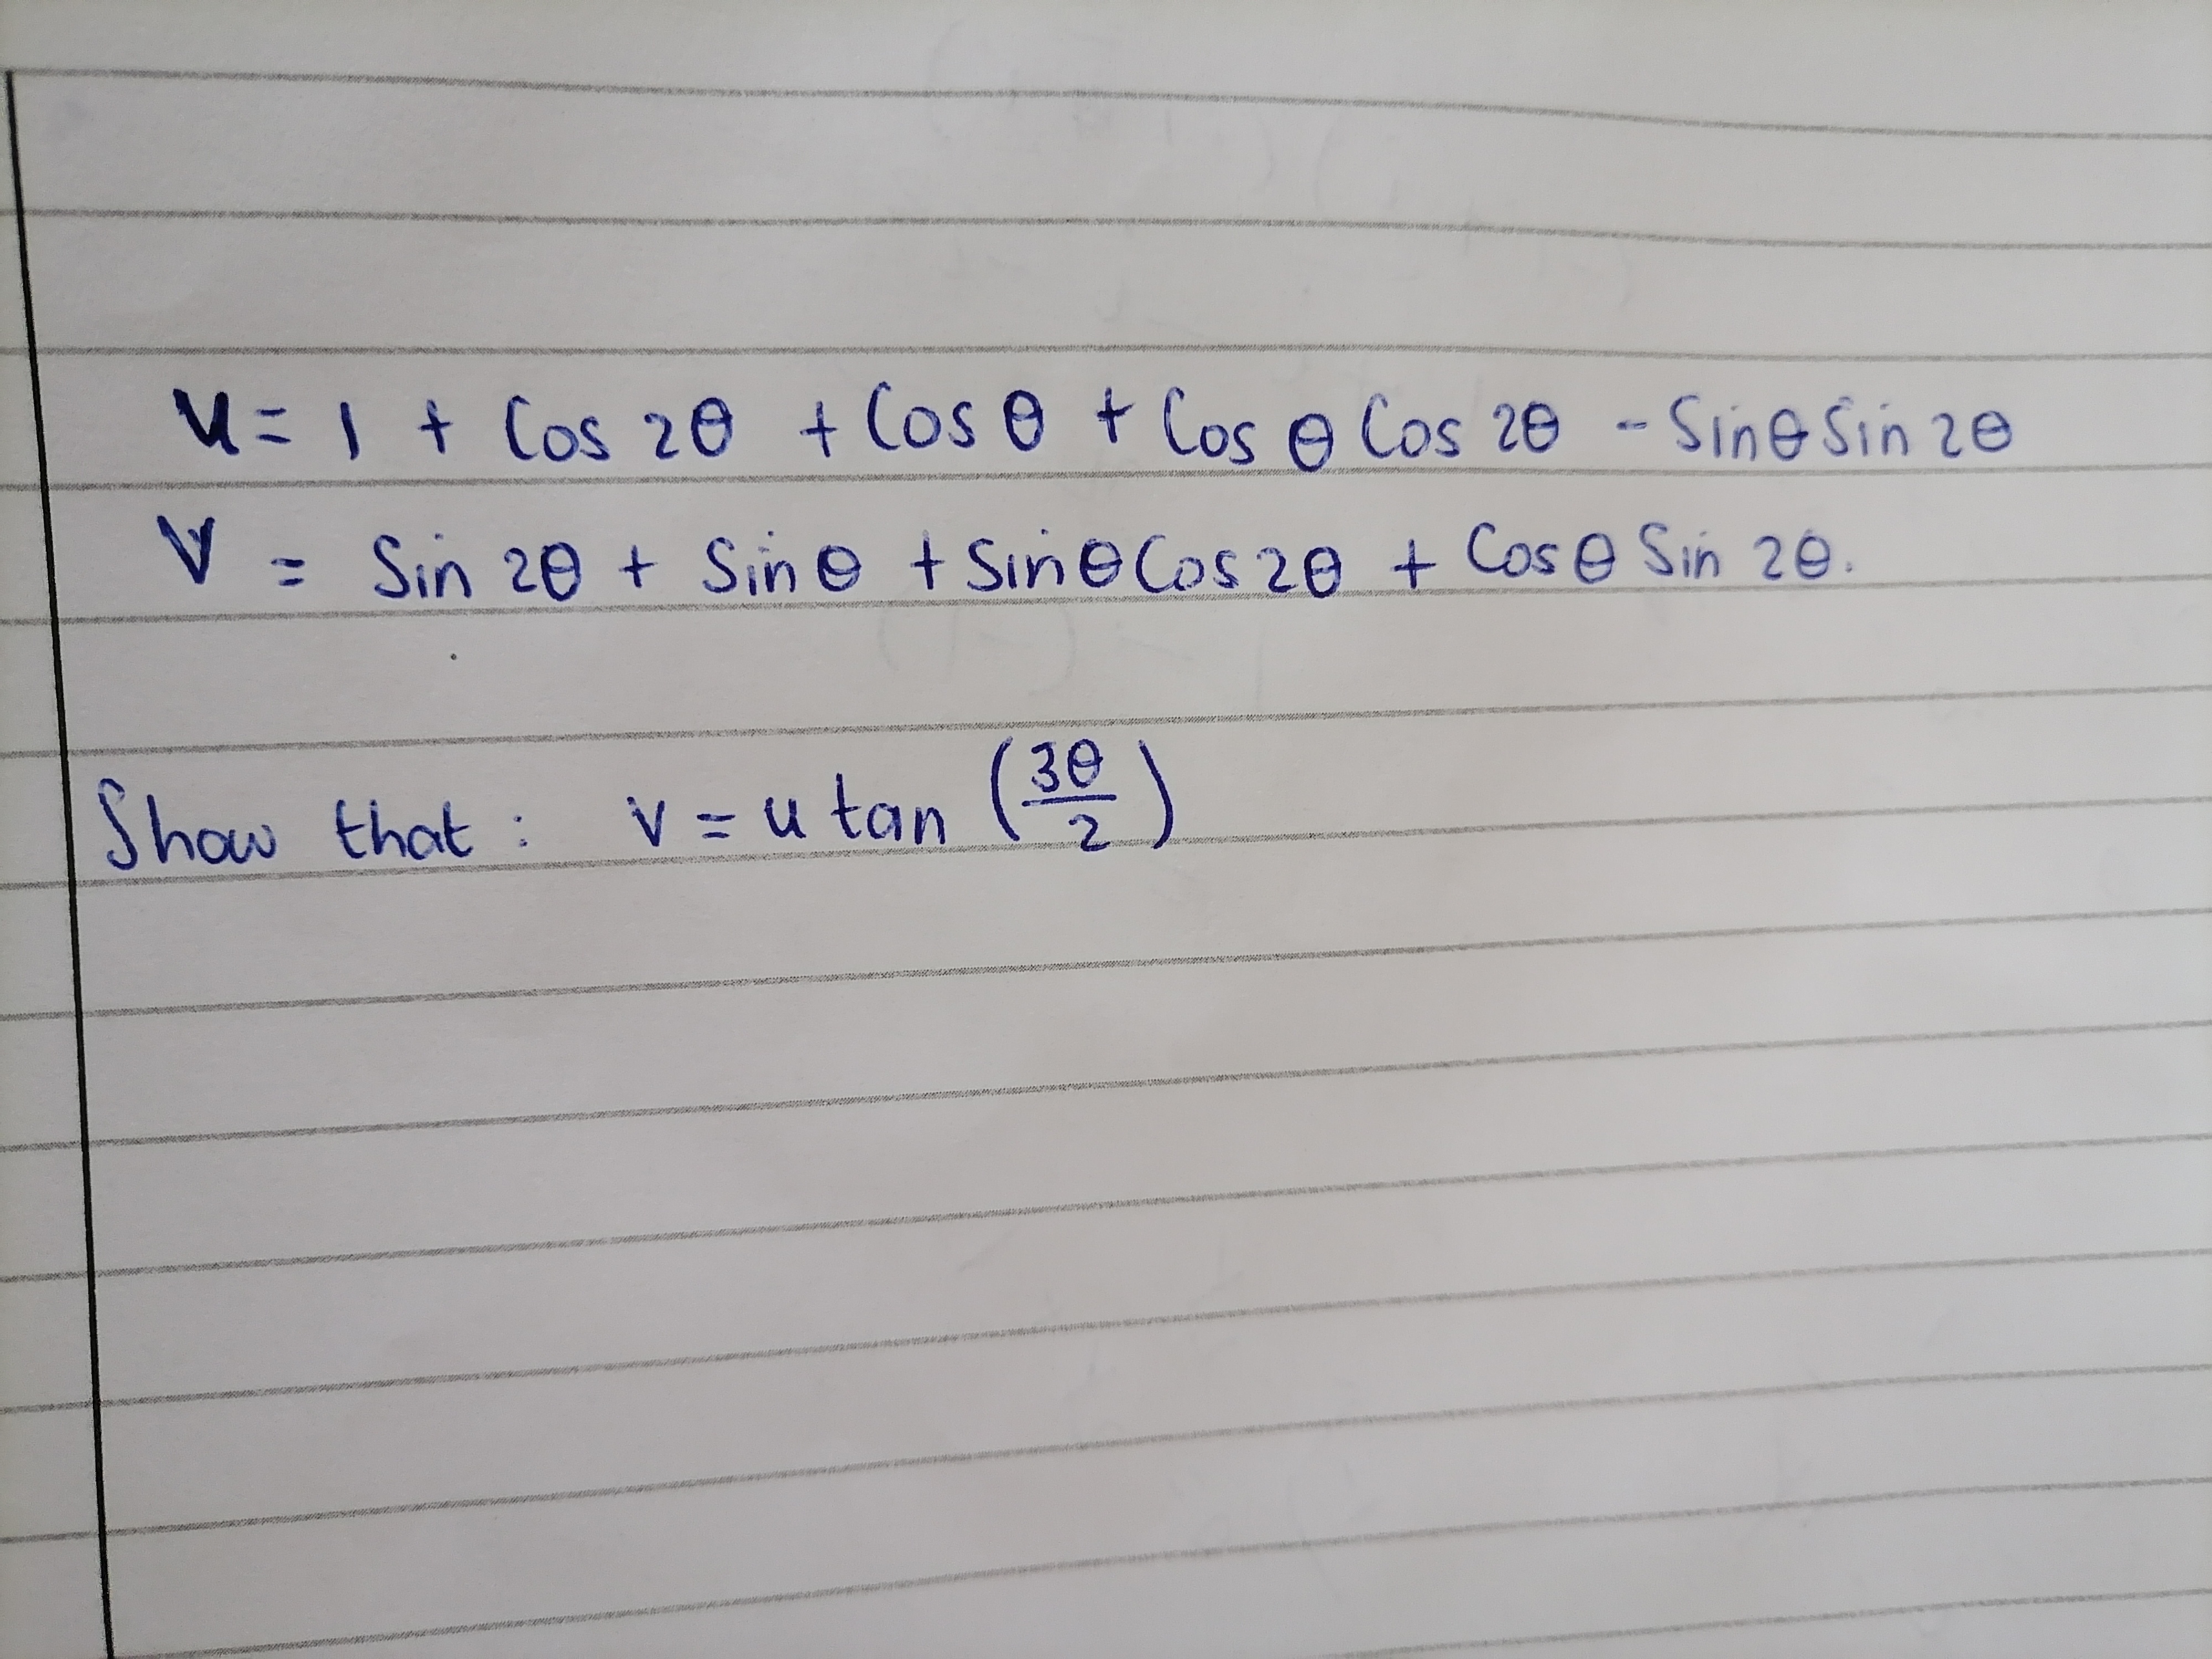 u = 1 + Cos 2θ + Cos θ + Cos θ Cos 2θ - Sin θ Sin 2θ
V = Sin 2θ + Sin θ + Sin θ Cos 2θ + Cos θ Sin 2θ.
Show that : v = u tan (3θ/2)